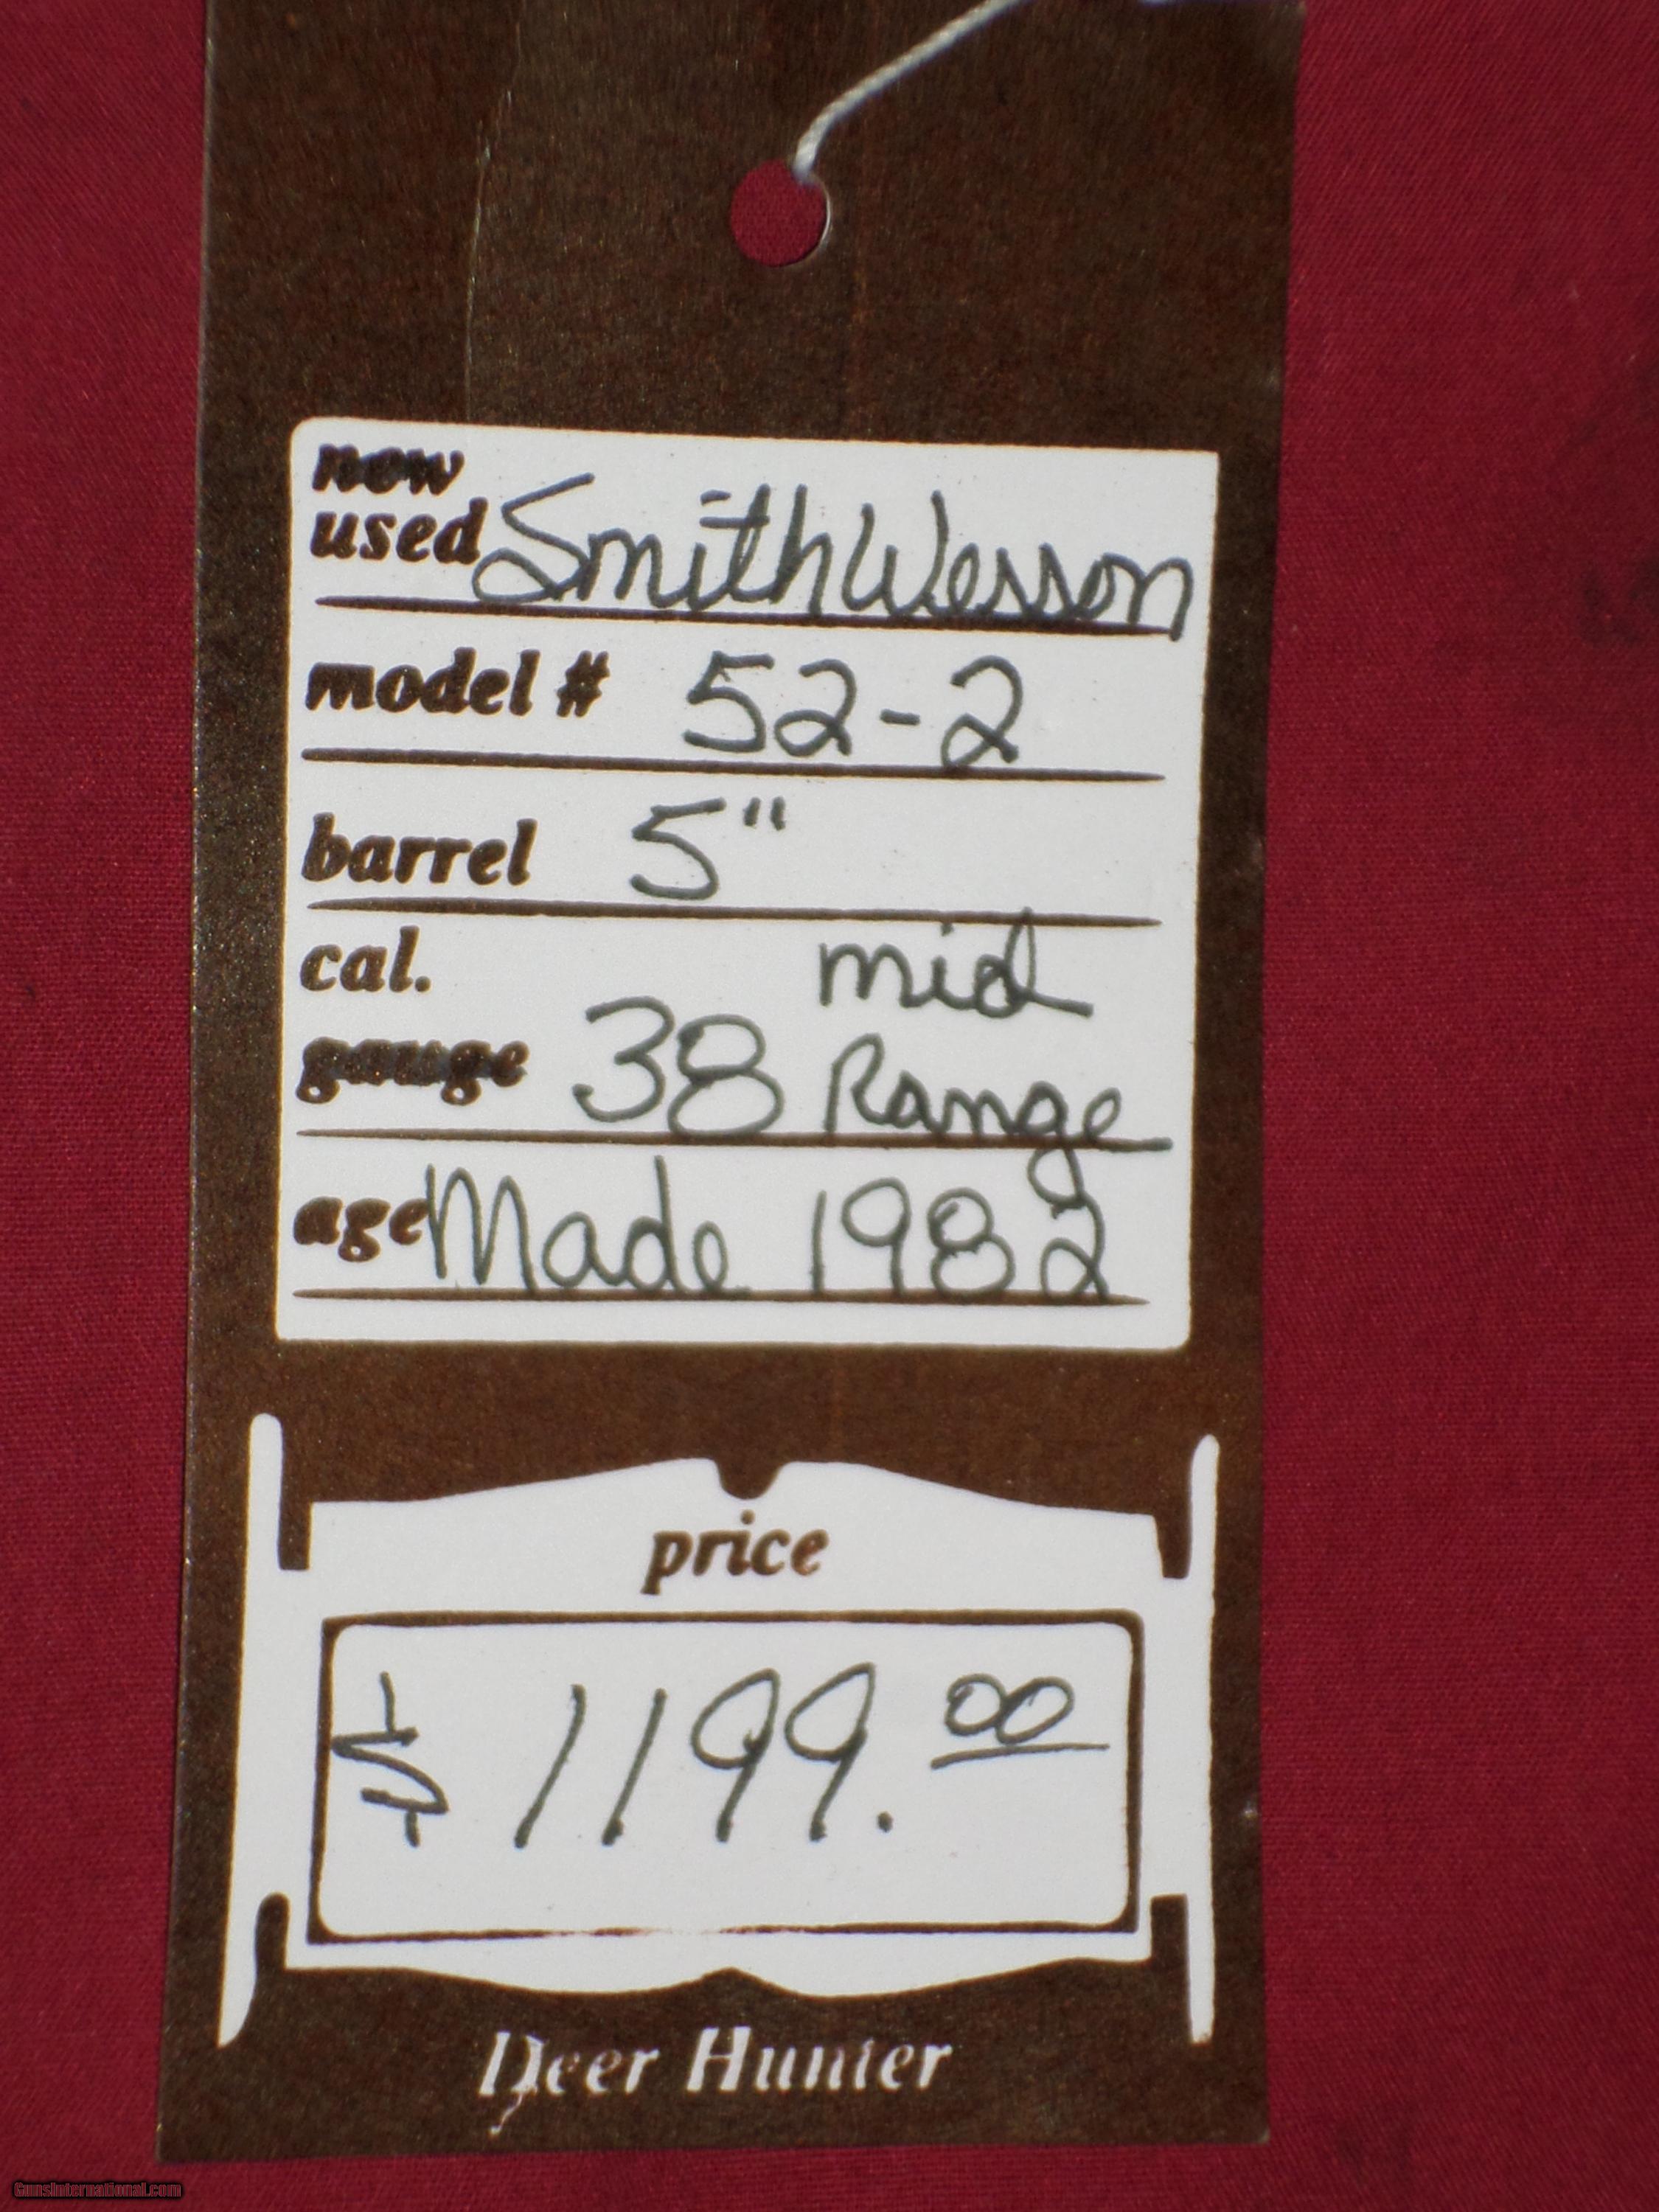 new
used Smith Wesson
model # 52-2
barrel 5"
cal. mid
gauge 38 Range
age Made 1982
price
$ 1199.00
Deer Hunter
GunsInternational.com